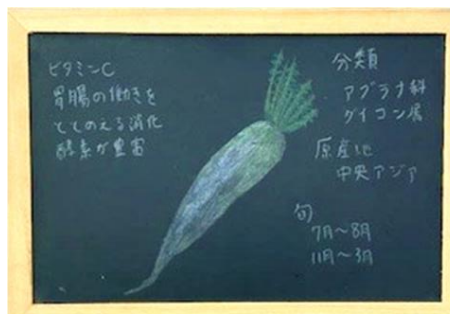 ビタミンC
胃腸の働きを
ととのえる消化
酵素が豊富
分類
アブラナ科
ダイコン属
原産地
中央アジア
旬
7月～8月
11月～3月